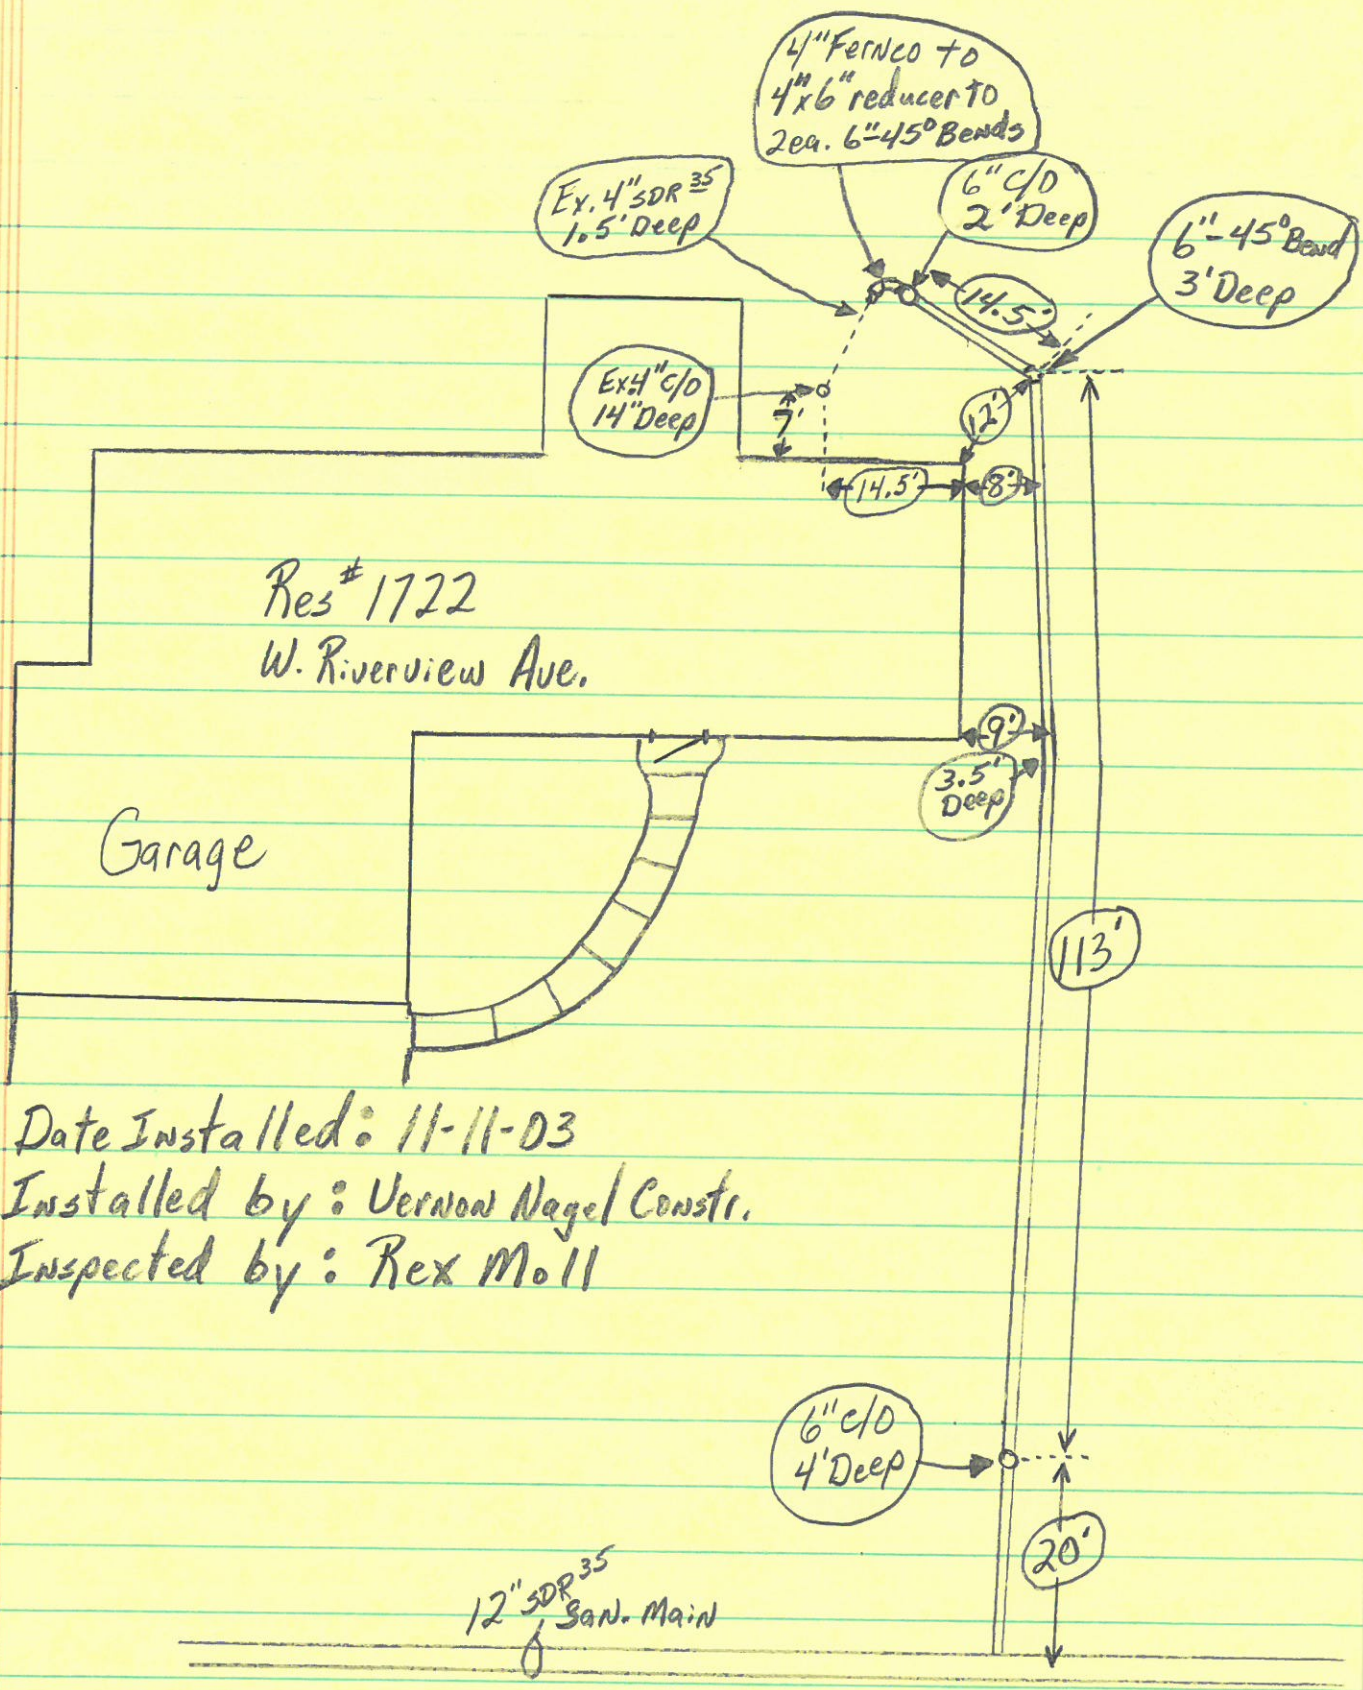 4" Fernco to
4"x6" reducer to
2ea. 6"-45° Bends
Ex. 4" SDR 35
1.5' Deep
6" C/O
2' Deep
6"-45° Bend
3' Deep
14.5'
Ex.4" C/O
14" Deep
7'
12'
14.5'
8'
Res # 1722
W. Riverview Ave.
9'
3.5'
Deep
Garage
113'
Date Installed: 11-11-03
Installed by: Vernon Nagel Constr.
Inspected by: Rex Moll
6" C/O
4' Deep
20'
12" SDR 35
San. Main